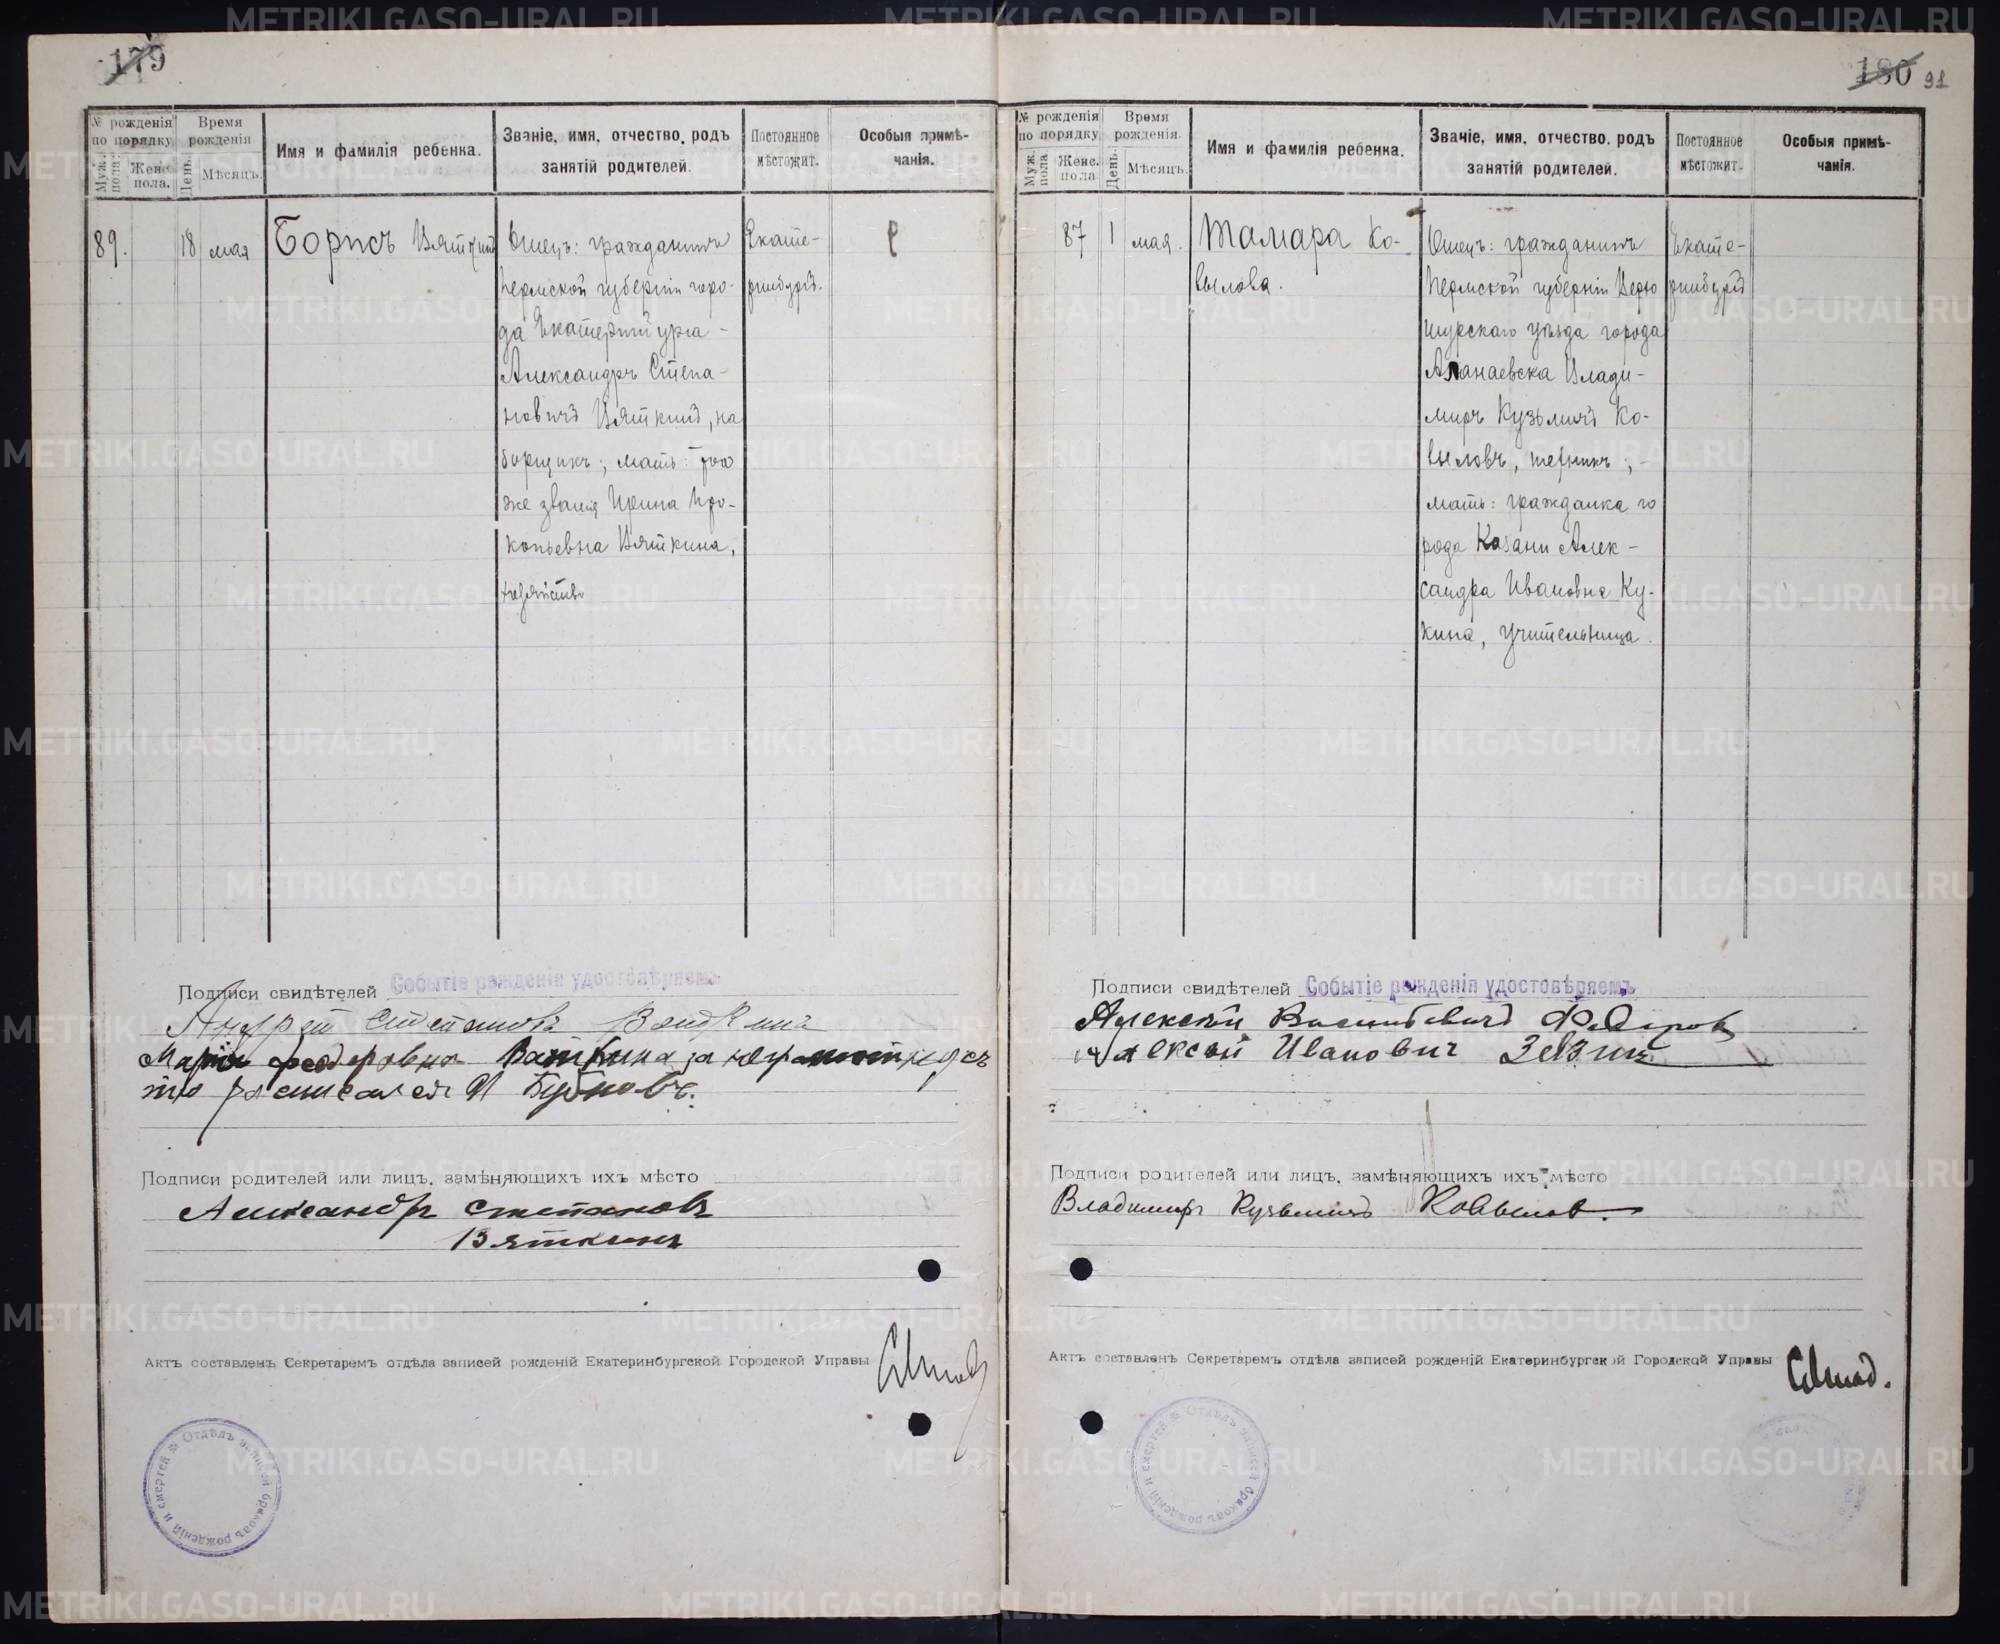 179
№ рожденія по порядку
Муж. пола.
Женс. пола.
Время рожденія
День.
Мѣсяцъ.
Имя и фамилія ребенка.
Званіе, имя, отчество, родъ
занятій родителей.
Постоянное
мѣстожит.
Особыя примѣ-
чанія.
89.
18
мая
Борисъ Вяткинъ
Отецъ: гражданинъ
Пермской губерніи горо-
да Екатеринбурга -
Александръ Степа-
новичъ Вяткинъ, на
борщикъ; мать: того
же званія Ирина Про-
копьевна Вяткина,
хозяйство
Екате-
ринбургъ.
Подписи свидѣтелей Событіе рожденія удостовѣряемъ
Андрей Степановъ
Марія Федоровна Вяткина за неграмотностью
росписался
Подписи родителей или лицъ, замѣняющихъ ихъ мѣсто
Александръ Степановъ
Вяткинъ
Актъ составленъ Секретаремъ отдѣла записей рожденій Екатеринбургской Городской Управы
Отдѣлъ записей браковъ рожденій и смертей
180 91
№ рожденія по порядку
Муж. пола
Женс. пола
Время рожденія.
День.
Мѣсяцъ.
Имя и фамилія ребенка.
Званіе, имя, отчество, родъ
занятій родителей.
Постоянное
мѣстожит.
Особыя примѣ-
чанія.
87
1
мая.
Тамара Ко-
вылова.
Отецъ: гражданинъ
Пермской губерніи Верхо
турскаго уѣзда города
Алапаевска Влади-
миръ Кузьмичъ Ко-
выловъ, техникъ; -
мать: гражданка го
рода Казани Алек-
сандра Ивановна Ку-
кина, учительница.
Екате-
ринбургъ
Подписи свидѣтелей Событіе рожденія удостовѣряемъ
Алексѣй Васильевичъ Федоровъ
Алексѣй Ивановичъ
Подписи родителей или лицъ, замѣняющихъ ихъ мѣсто
Владимиръ Кузьмичъ Ковыловъ.
Актъ составленъ Секретаремъ отдѣла записей рожденій Екатеринбургской Городской Управы
Отдѣлъ записей браковъ рожденій и смертей
METRIKI.GASO-URAL.RU